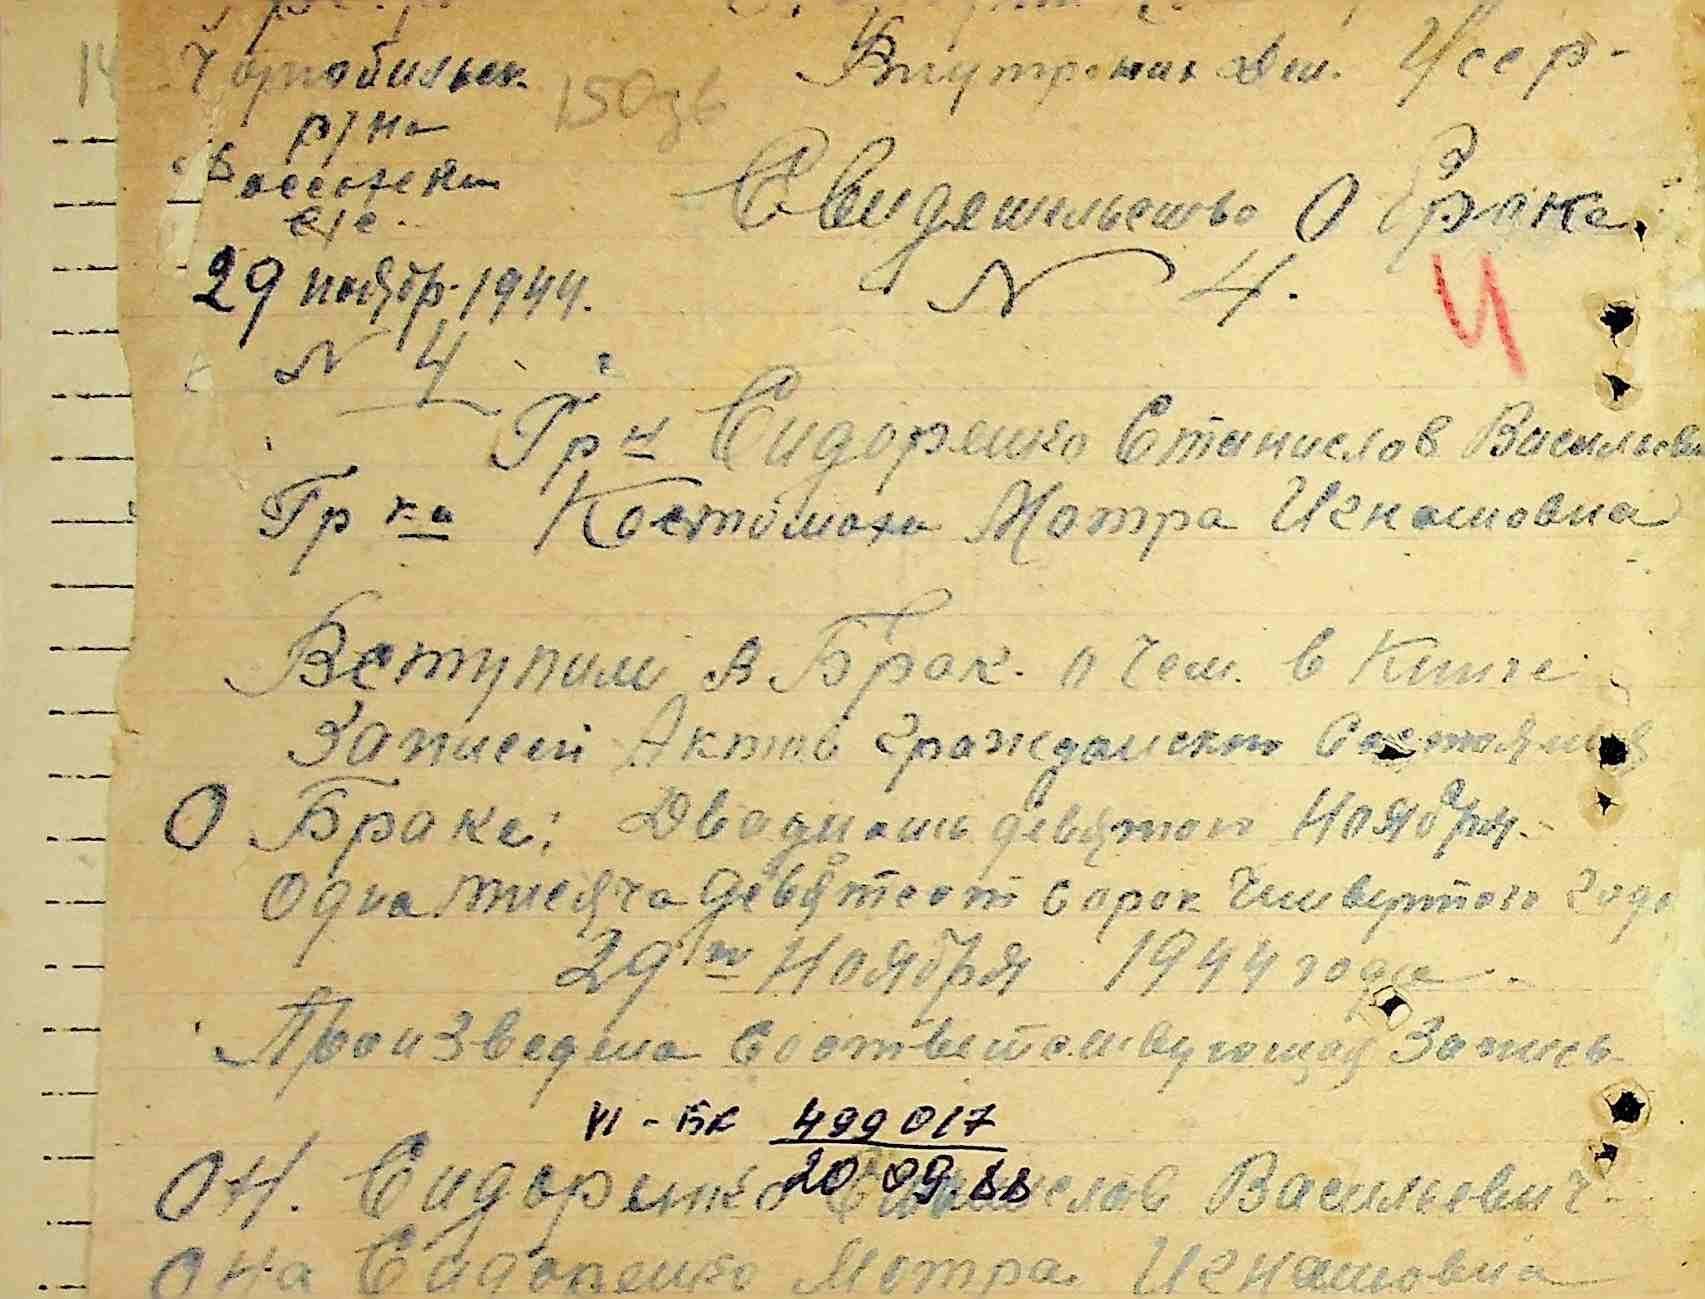 Чорнобильск.
150
Внутрених Дел. Усср-
р/на
с/с.
Свидетельство О Браке
29 ноябр. 1944.
N 4.
Ч
N 4
Гр н Сидоренко Станислов Васильеви
Гр ка Костомаха Мотра Игнатовна
Вступили в Брак. о чем. в Книге
Записей Актов гражданском Состояния
О Браке: Двадцать девятого Ноября.
Одна тисяча девятсот сорок Четвертого Года
29 го Ноября 1944 года.
Произведена Соответствующая Запись
VI - БК 499017
20 09.88
ОН. Сидоренко Станислав Васильевич-
ОНа Сидоренко Мотра Игнатовна